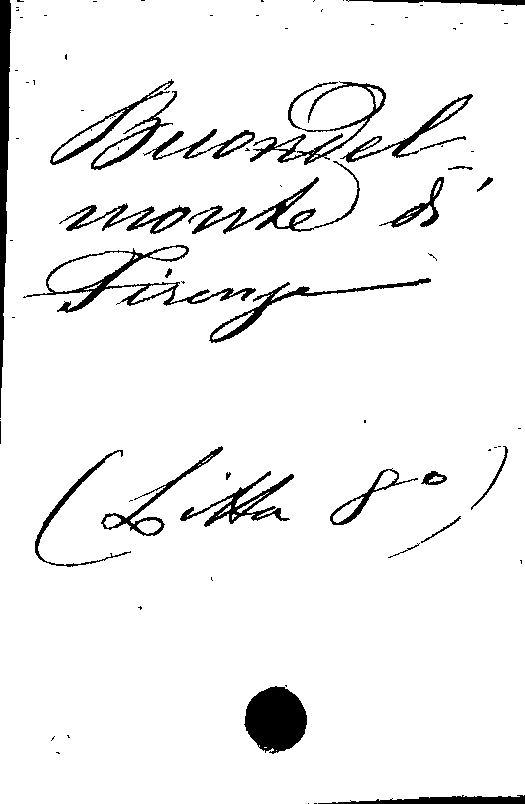 Buondel
monte di
Firenze
(Litta 8º)